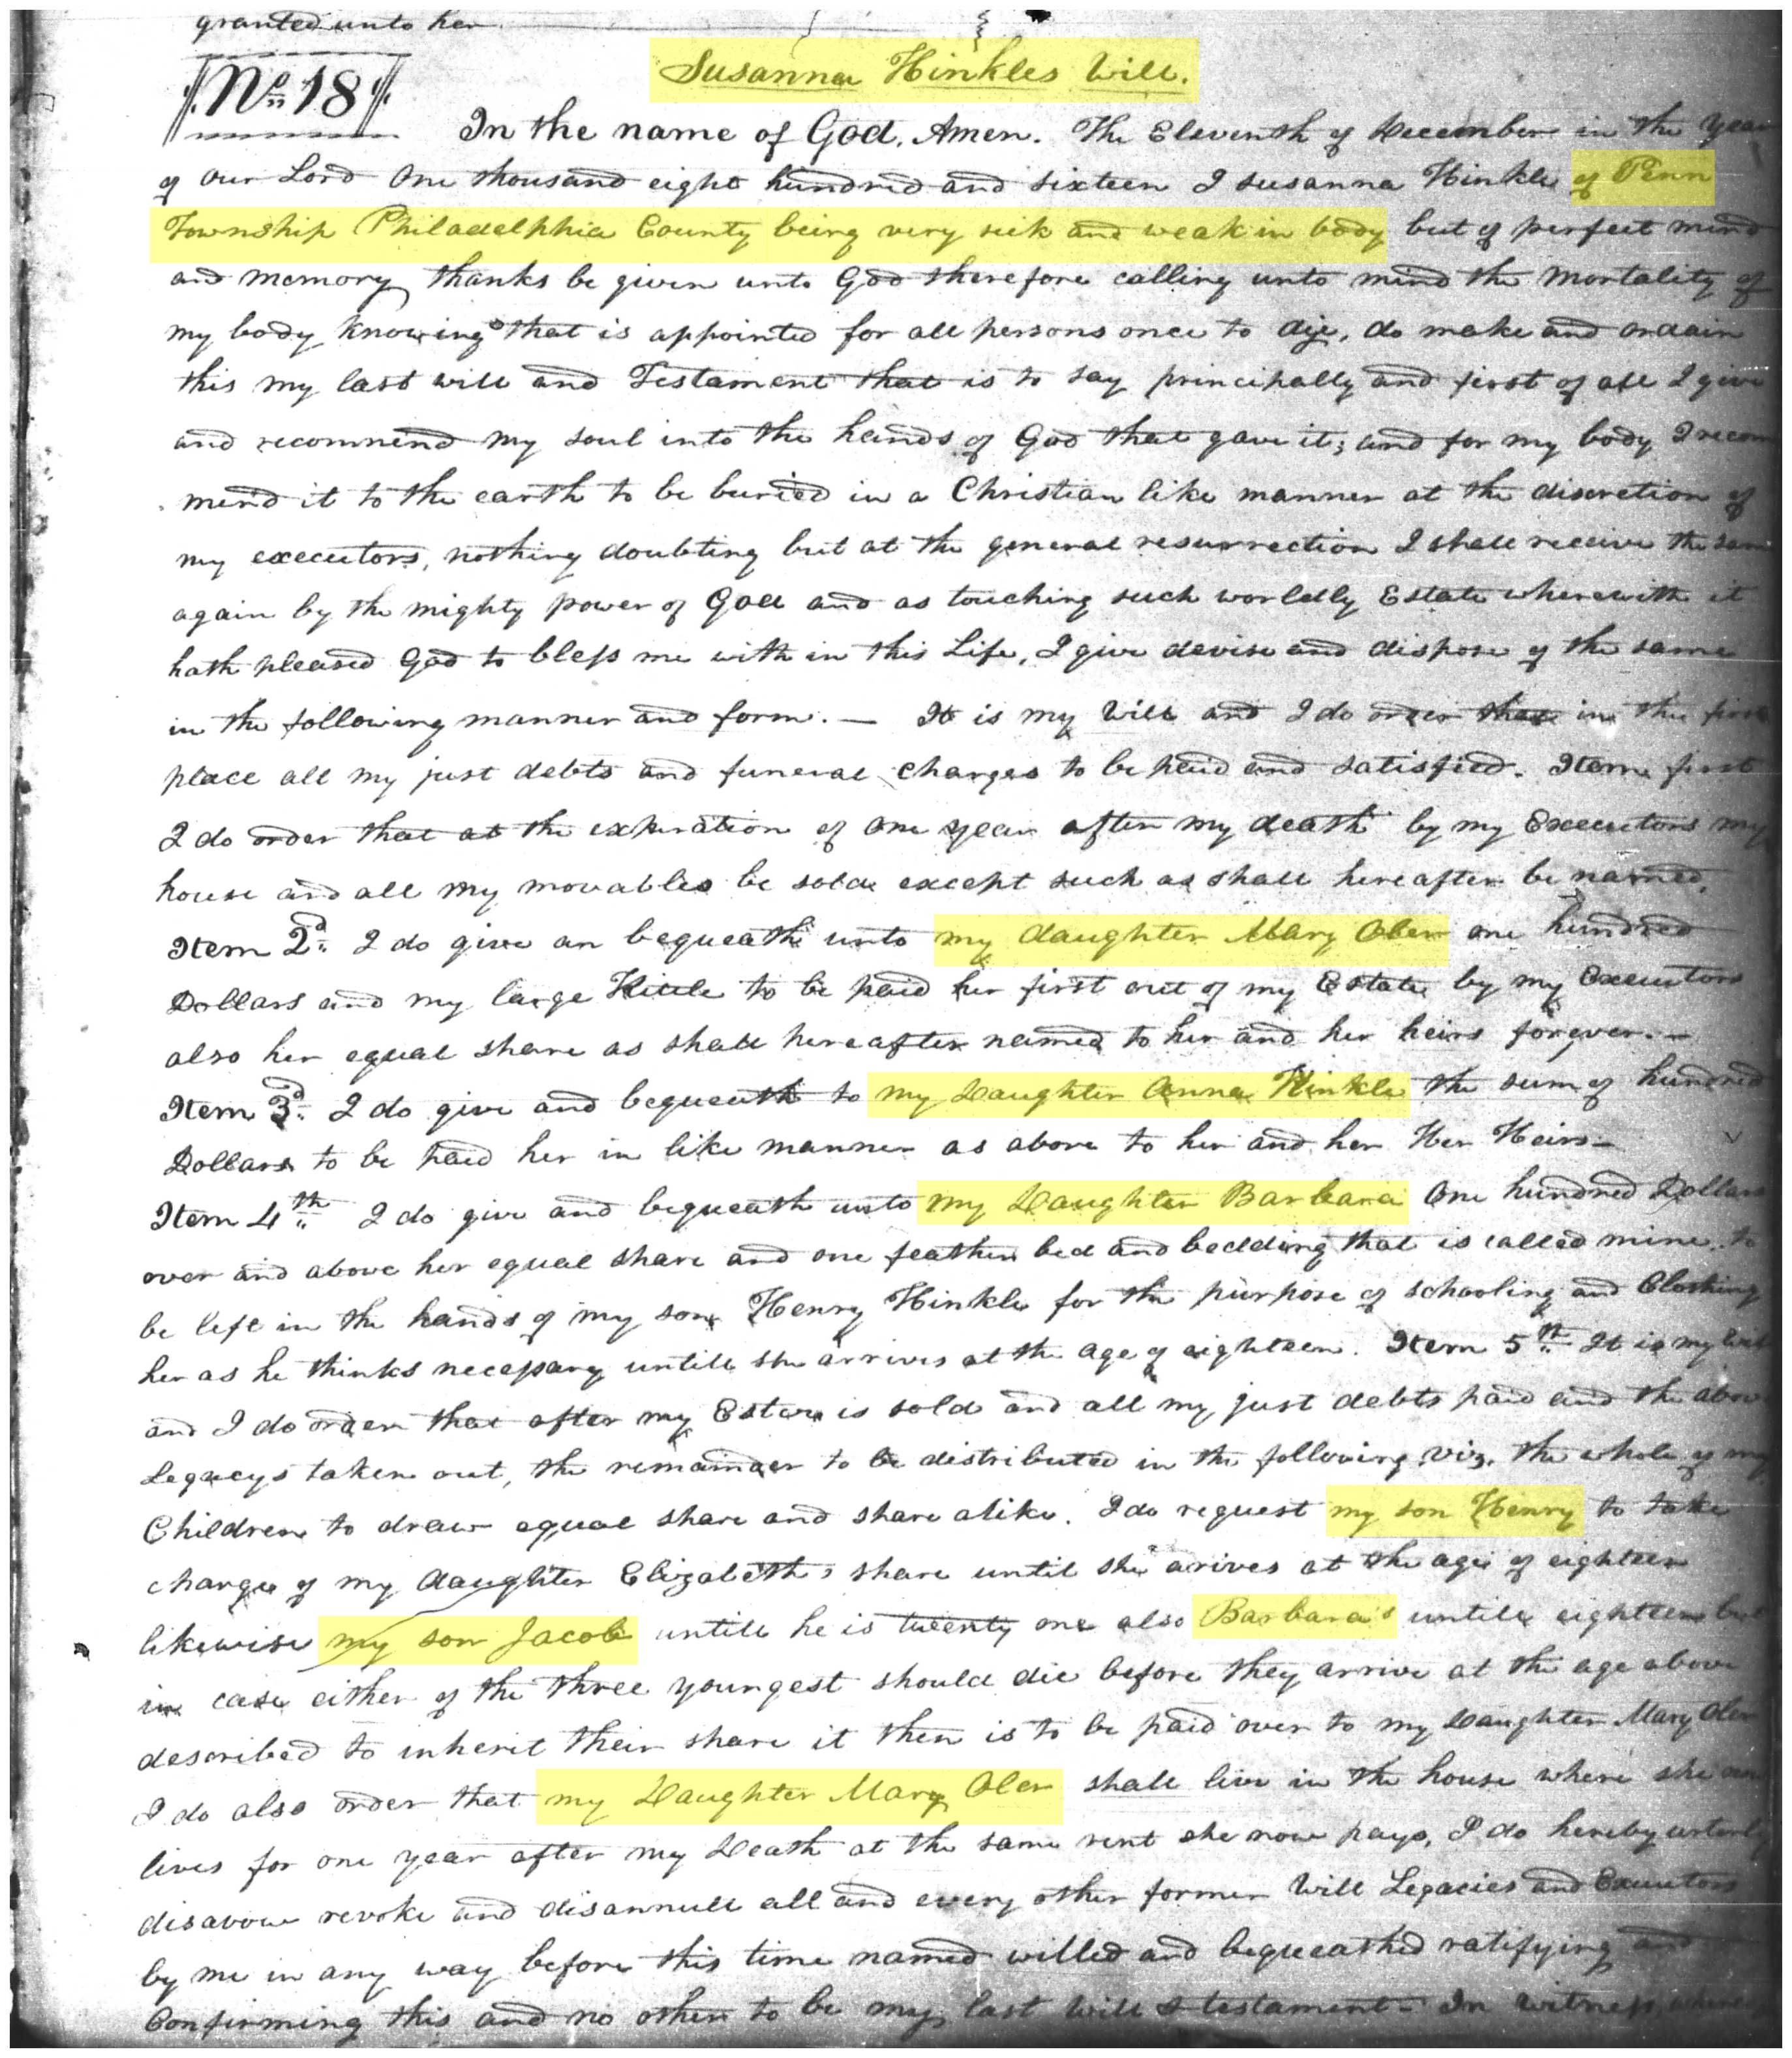 granted unto her
No 18
Susanna Hinkles Will.
In the name of God, Amen. The Eleventh of December in the Year
of our Lord One thousand eight hundred and sixteen I susanna Hinkle of Penn
Township Philadelphia County being very sick and weak in body but of perfect mind
and memory thanks be given unto God therefore calling unto mind the mortality of
my body knowing that is appointed for all persons once to dye, do make and ordain
this my last will and Testament that is to say principally and first of all I give
and recommend my soul into the hands of God that gave it; and for my body I recom
mend it to the earth to be buried in a Christian like manner at the discretion of
my executors, nothing doubting but at the general resurrection I shall receive the same
again by the mighty power of God and as touching such worldly Estate wherewith it
hath pleased God to bless me with in this Life, I give devise and dispose of the same
in the following manner and form. — It is my Will and I do order that in the first
place all my just debts and funeral charges to be paid and satisfied. Item first
I do order that at the expiration of one year after my death by my Executors my
house and all my movables be sold except such as shall hereafter be named.
Item 2d. I do give an bequeath unto my daughter Mary Oler one hundred
Dollars and my large Kittle to be paid her first out of my Estate by my Executors
also her equal share as shall hereafter named to her and her heirs forever. —
Item 3d. I do give and bequeath to my Daughter Anna Hinkle the sum of hundred
Dollars to be paid her in like manner as above to her and her Her Heirs —
Item 4th I do give and bequeath unto my Daughter Barbara One hundred Dollars
over and above her equal share and one feather bed and bedding that is called mine, to
be left in the hands of my son Henry Hinkle for the purpose of schooling and Clothing
her as he thinks necessary untill she arrives at the age of eighteen. Item 5th It is my will
and I do order that after my Estate is sold and all my just debts paid and the above
Legacys taken out, the remainder to be distributed in the following viz. the whole of my
Children to draw equal share and share alike. I do request my son Henry to take
charge of my daughter Elizabeth's share until she arives at the age of eighteen
likewise my son Jacob untill he is twenty one also Barbara's untill eighteen but
in case either of the three youngest should die before they arrive at the age above
described to inherit their share it then is to be paid over to my Daughter Mary Oler
I do also order that my Daughter Mary Oler shall live in the house where she now
lives for one year after my Death at the same rent she now pays, I do hereby utterly
disavow revoke and disannull all and every other former Will Legacies and Executors
by me in any way before this time named willed and bequeathed ratifying and
Confirming this and no other to be my last Will & testament. In witness where